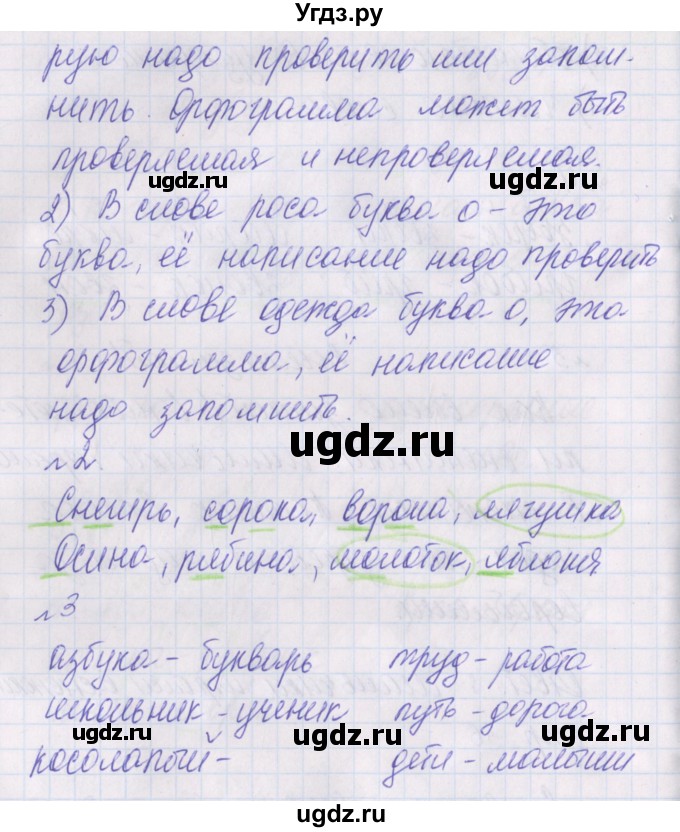 Угдз.ру
рую надо проверить или запом-
нить. Орфограмма может быть
проверяемая и непроверяемая.
ugdz.ru ugdz.ru
2) В слове роса буква о – это
буква, её написание надо проверить
3) В слове одежда буква о, это
орфограмма, её написание
надо запомнить.
ugdz.ru
№2
Снегирь, сорока, ворона, лягушка
Осина, рябина, молоток, яблоня
№3
азбука – букварь труд – работа
школьник – ученик путь – дорога
ugdz.ru ugdz.ru
косолапый – дети – малыши
ugdz.ru